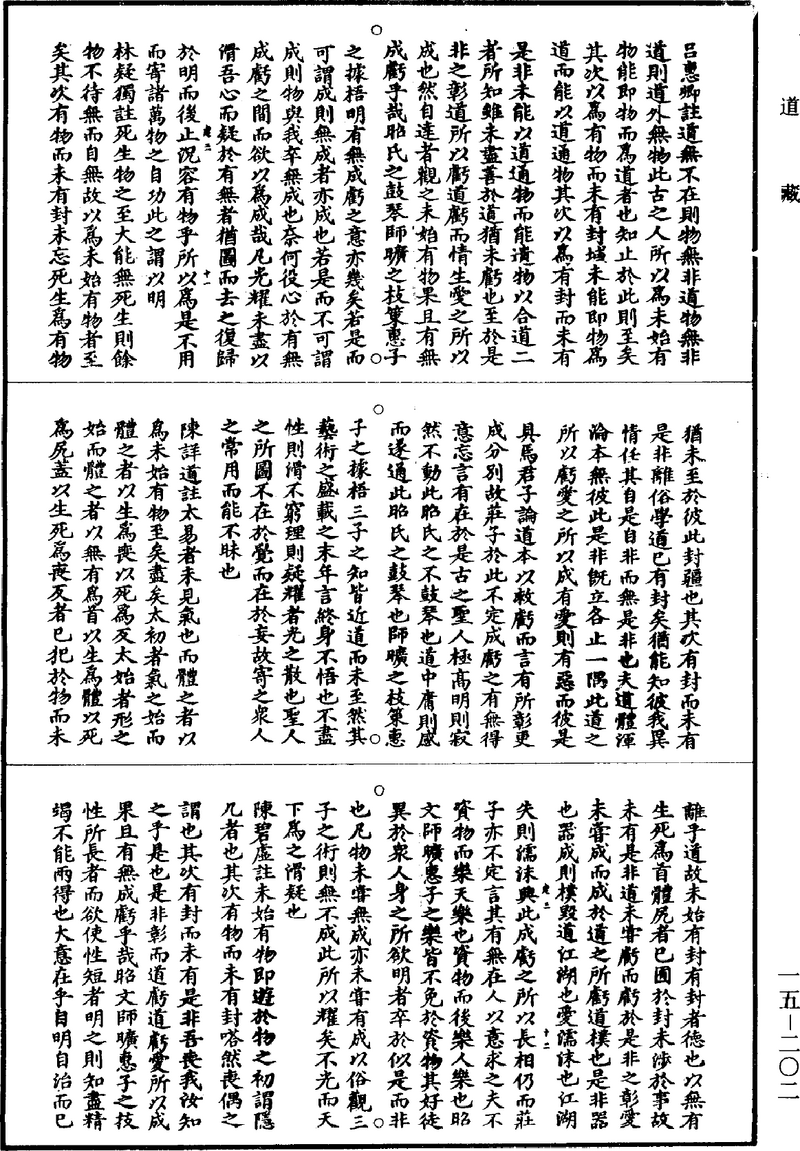 道藏
一五—二〇二
呂惠卿註道無不在則物無非道物無非
道則道外無物此古之人所以為未始有
物能即物而為道者也知止於此則至矣
其次以為有物而未有封域未能即物為
道而能以道通物其次以為有封而未有
是非未能以道通物而能遺物以合道二
者所知雖未盡善於道猶未虧也至於是
非之彰道所以虧道虧而情生愛之所以
成也然自達者觀之未始有物果且有無
成虧乎哉昭氏之鼓琴師曠之枝策惠子
之據梧明有無成虧之意亦幾矣若是而
可謂成則無成者亦成也若是而不可謂
成則物與我卒無成也奈何役心於有無
成虧之間而欲以為成哉凡光耀未盡以
滑吾心而疑於有無者猶圖而去之復歸
於明而後止況容有物乎所以為是不用
而寄諸萬物之自功此之謂以明
林疑獨註死生物之至大能無死生則餘
物不待無而自無故以為未始有物者至
矣其次有物而未有封未忘死生為有物
猶未至於彼此封疆也其次有封而未有
是非離俗學道已有封矣猶能知彼我異
情任其自是自非而無是非也夫道體渾
淪本無彼此是非既立各止一隅此道之
所以虧愛之所以成有愛則有惡而彼是
具焉君子論道本以救虧而言有所彰更
成分別故莊子於此不定成虧之有無得
意忘言有在於是古之聖人極高明則寂
然不動此昭氏之不鼓琴也道中庸則感
而遂通此昭氏之鼓琴也師曠之枝策惠
子之據梧三子之知皆近道而未至然其
藝術之盛載之末年言終身不悟也不盡
性則滑不窮理則疑耀者光之散也聖人
之所圖不在於覺而在於妄故寄之眾人
之常用而能不昧也
陳詳道註太易者未見氣也而體之者以
為未始有物至矣盡矣太初者氣之始而
體之者以生為喪以死為反太始者形之
始而體之者以無有為首以生為體以死
為尻蓋以生死為喪反者已犯於物而未
離乎道故未始有封有封者德也以無有
生死為首體尻者已囿於封未涉於事故
未有是非道未嘗虧而虧於是非之彰愛
未嘗成而成於道之所虧道樸也是非器
也器成則樸毀道江湖也愛濡沫也江湖
失則濡沫興此成虧之所以長相仍而莊
子亦不定言其有無在人以意求之夫不
資物而樂天樂也資物而後樂人樂也昭
文師曠惠子之樂皆不免於資物其好徒
異於眾人身之所欲明者卒於似是而非
也凡物未嘗無成亦未嘗有成以俗觀三
子之術則無不成此所以耀矣不光而天
下為之滑疑也
陳碧虛註未始有物即遊於物之初謂隱
几者也其次有物而未有封嗒然喪偶之
謂也其次有封而未有是非吾喪我汝知
之乎是也是非彰而道虧道虧愛所以成
果且有無成虧乎哉昭文師曠惠子之技
性所長者而欲使性短者明之則知盡精
竭不能兩得也大意在乎自明自治而已